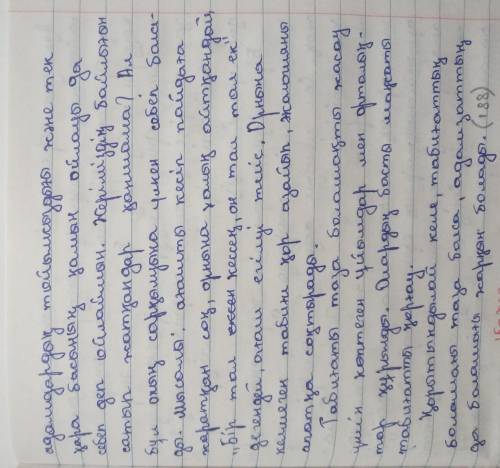 адамдардың тойымсыздығы және тек
қара басының қамын ойлауы да
себеп деп ойлаймын. Жеріміздің байлығын
сатып жатқандар қаншама? Ал
бұл оның сарқылуына үлкен себеп бола-
ды. Мысалы: ағашты кесіп пайдаға
жаратқан соң, орнына халық айтқандай,
"Бір тал кессең, он тал тал ек"
дегендей, ағаш егілуі тиіс. Орнына
келмеген табиғи қор азайып, жалғаны
апатқа соқтырады.
Табиғаты таза болашақты жасау
үшін көптеген ұйымдар мен орталық-
тар құрылды. Олардың басты мақсаты
табиғатты қорғау.
Қорытындылай келе, табиғаттың
болашағы таза болса, адамзаттың
да болашағы жарқын болады. (188)